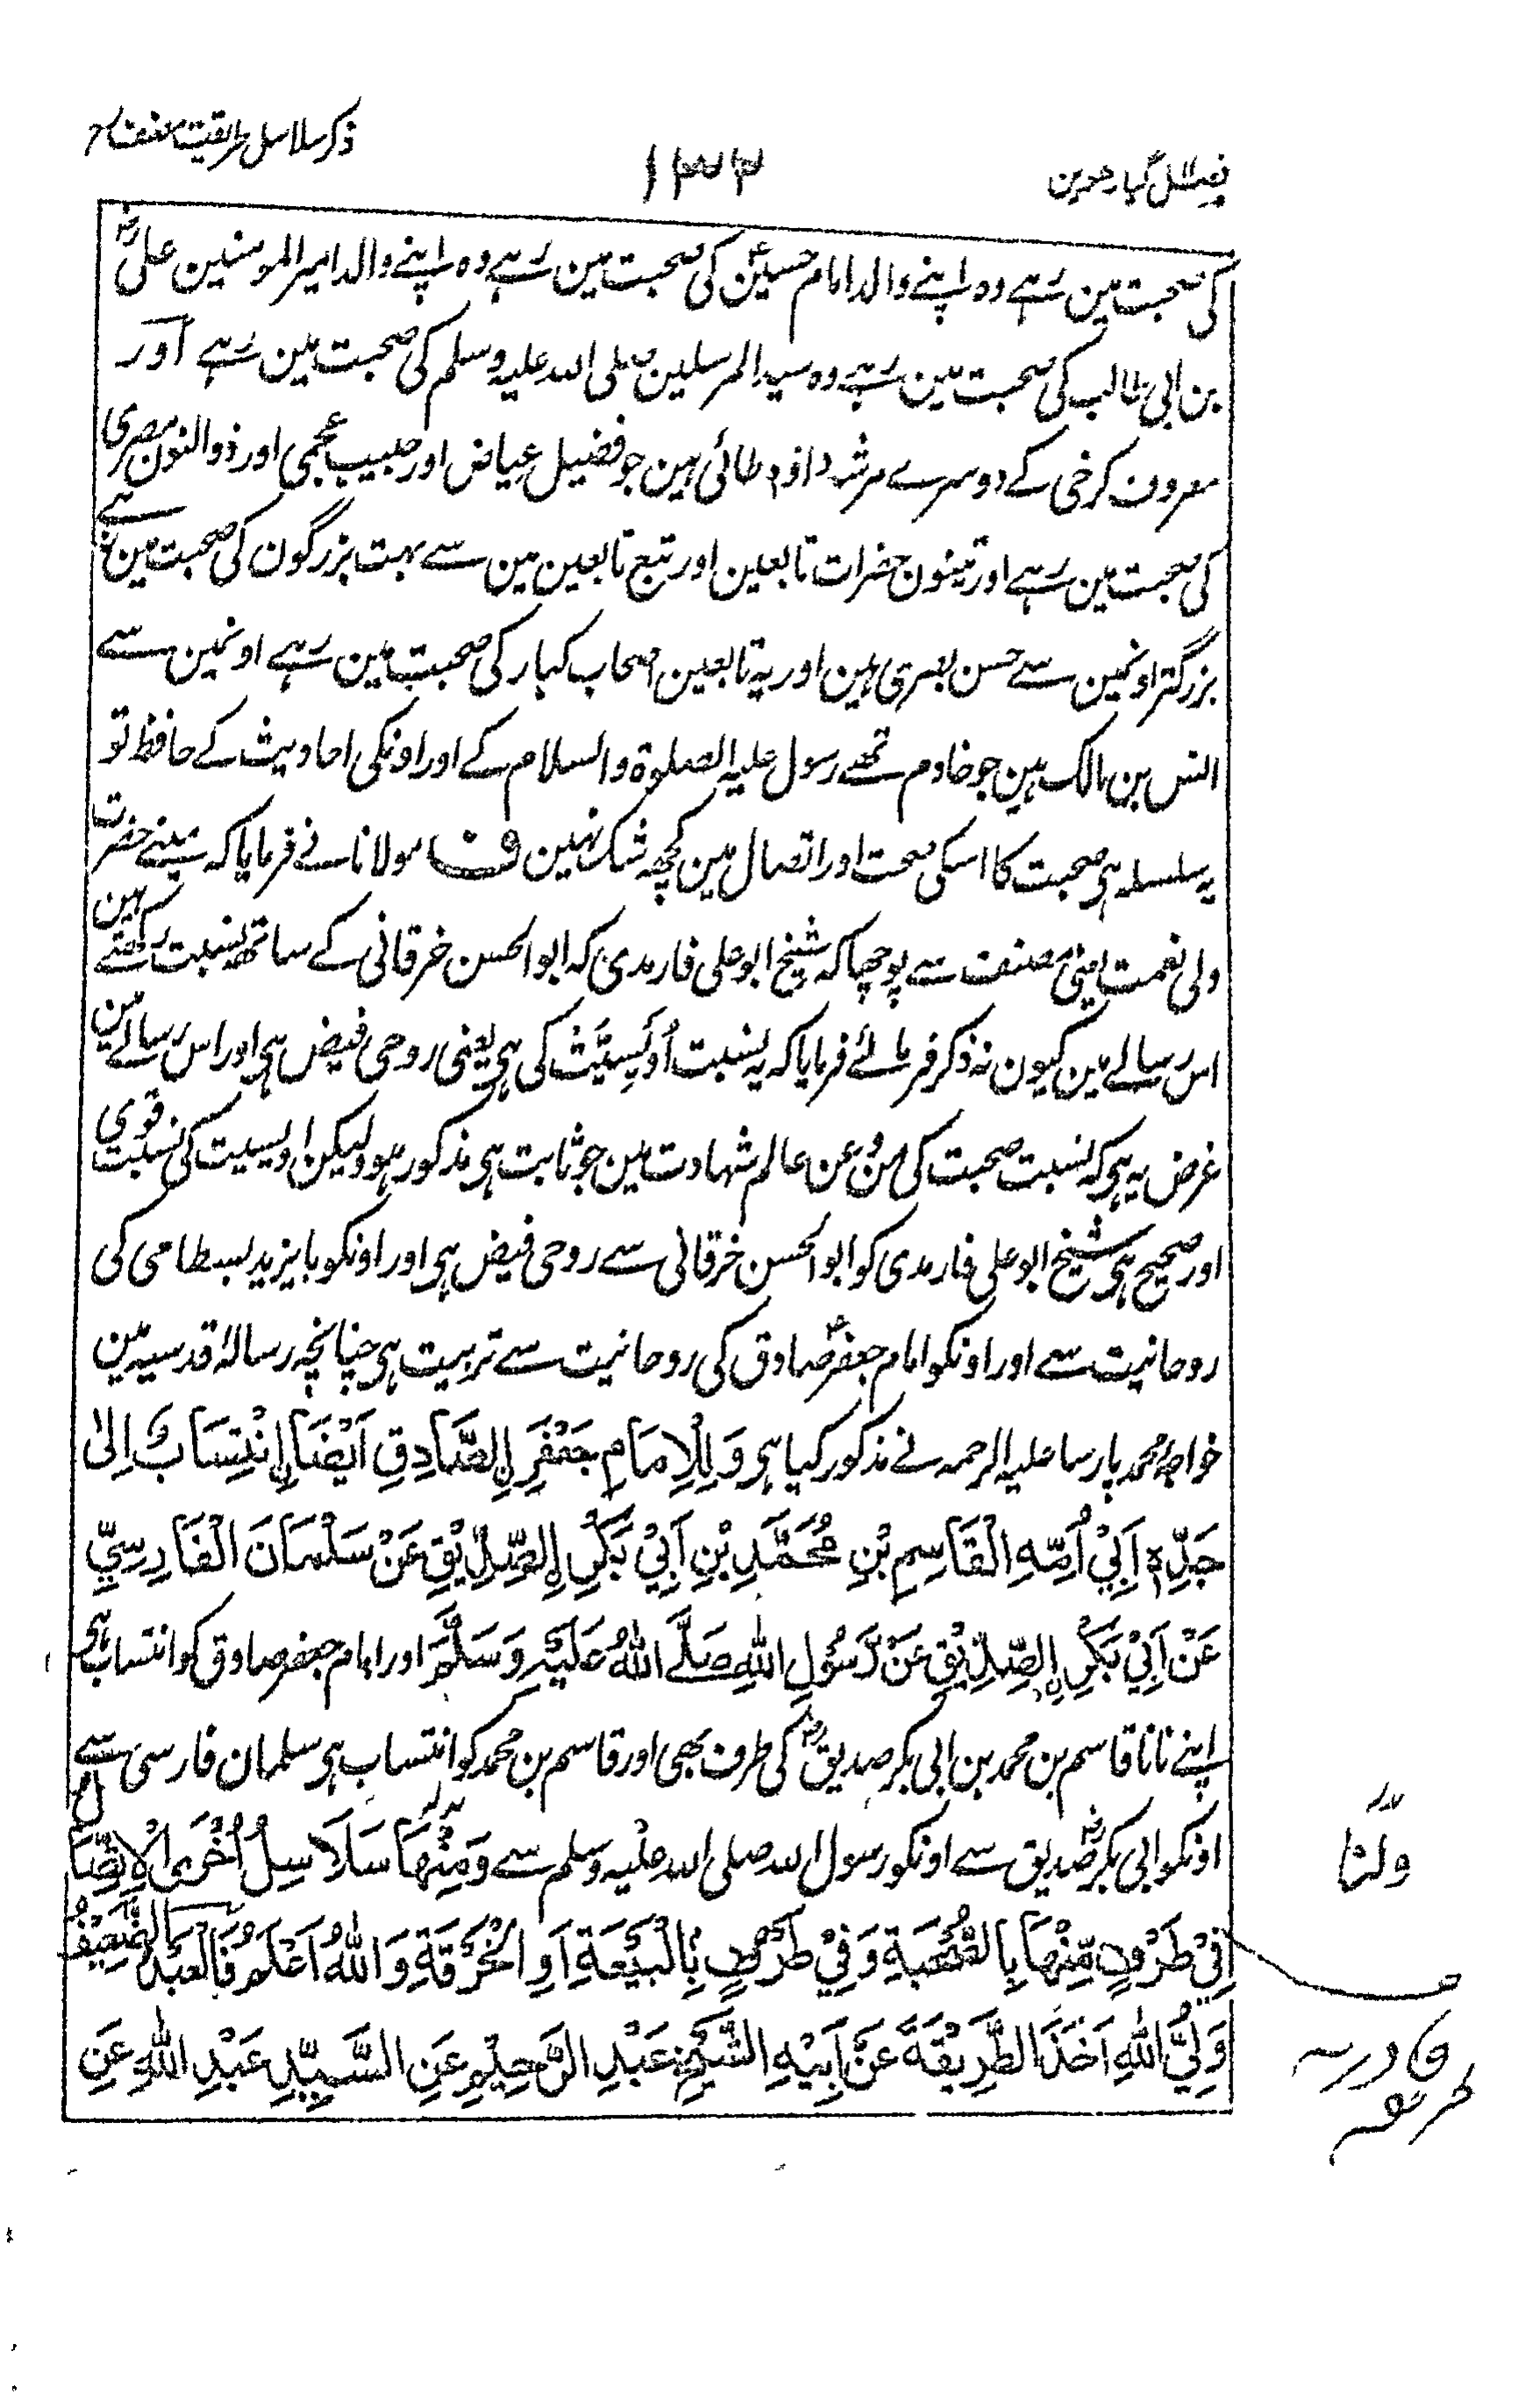 ذکر سلاسل طریقت مصنف رح
۱۳۲
فصل گیارھوین
کی صحبت مین رہے وہ اپنے والد امام حسینؑ کی صحبت مین رہے وہ اپنے والد امیر المومنین علیؓ
بن ابی طالب کی صحبت مین رہے وہ سید المرسلین صلی اللہ علیہ وسلم کی صحبت مین رہے اور
معروف کرخی کے دوسرے مرشد داؤد طائی ہین جو فضیل عیاض اور حبیب عجمی اور ذوالنون مصری
کی صحبت مین رہے اور تینون حضرات تابعین اور تبع تابعین مین سے بہت بزرگون کی صحبت مین تھے
بزرگتر اونمین سے حسن بصری ہین اور یہ تابعین اصحاب کبار کی صحبت مین رہے اونمین سے
انس بن مالک ہین جو خادم تھے رسول علیہ الصلوۃ والسلام کے اور اونکی احادیث کے حافظ تو
یہ سلسلہ ہی صحبت کا اسکی صحت اور اتصال مین کچھ شک نہین ف مولانا نے فرمایا کہ مینے حضرت
ولی نعمت یعنی مصنف سے پوچھا کہ شیخ ابو علی فارمدی کہ ابو الحسن خرقانی کے ساتھ نسبت رکھتے ہین
اس رسالے مین کیون نہ ذکر فرمائے فرمایا کہ یہ نسبت اُوَیسِیَّت کی ہی یعنی روحی فیض ہی اور اس رسالے مین
غرض یہ ہی کہ نسبت صحبت کی من و عن عالم شہادت مین جو ثابت ہی مذکور ہو ولیکن اویسیت کی نسبت قوی
اور صحیح ہی شیخ ابو علی فارمدی کو ابو الحسن خرقانی سے روحی فیض ہی اور اونکو بایزید بسطامی کی
روحانیت سے اور اونکو امام جعفرؑ صادق کی روحانیت سے تربیت ہی چنانچہ رسالۂ قدسیہ مین
خواجہ محمد پارسا علیہ الرحمہ نے مذکور کیا ہی وَلِلْاِمَامِ جَعْفَرِ اِلصَّادِقِ اَیْضَا اِنْتِسَابٌ اِلیٰ
جَدِّہٖ اَبِیْ اُمِّہِ الْقَاسِمِ بْنِ مُحَمَّدِ بْنِ اَبِیْ بَکْرِ اِلصِّدِّیْقِ عَنْ سَلْمَانَ الْفَارِسِیِّ
عَنْ اَبِیْ بَکْرِ اِلصِّدِّیْقِ عَنْ رَّسُوْلِ اللّٰہِ صَلَّے اللّٰہُ عَلَیْہِ وَسَلَّمَ اور امام جعفر صادق کو انتساب ہی
اپنے نانا قاسم بن محمد بن ابی بکر صدیقؓ کی طرف بھی اور قاسم بن محمد کو انتساب ہی سلمان فارسی سے
اونکو ابی بکرؓ صدیق سے اونکو رسول اللہ صلی اللہ علیہ وسلم سے وَمِنْھَا سَلَاسِلُ اُخْرَی الْاِتِّصَالُ
فِیْ طَرْفٍ مِّنْھَا بِالصُّحْبَةِ وَفِیْ طَرْفٍ بِالْبَیْعَةِ اَوِ الْخِرْقَةِ وَاللّٰہُ اَعْلَمُ فَالْعَبْدُ الضَّعِیْفُ
وَلِیُّ اللّٰہِ اَخَذَ الطَّرِیْقَةَ عَنْ اَبِیْہِ الشَّیْخِ عَبْدِ الرَّحِیْمِ عَنِ السَّیِّدِ عَبْدِ اللّٰہِ عَنِ
ولنا
قادریہ
طریقہ